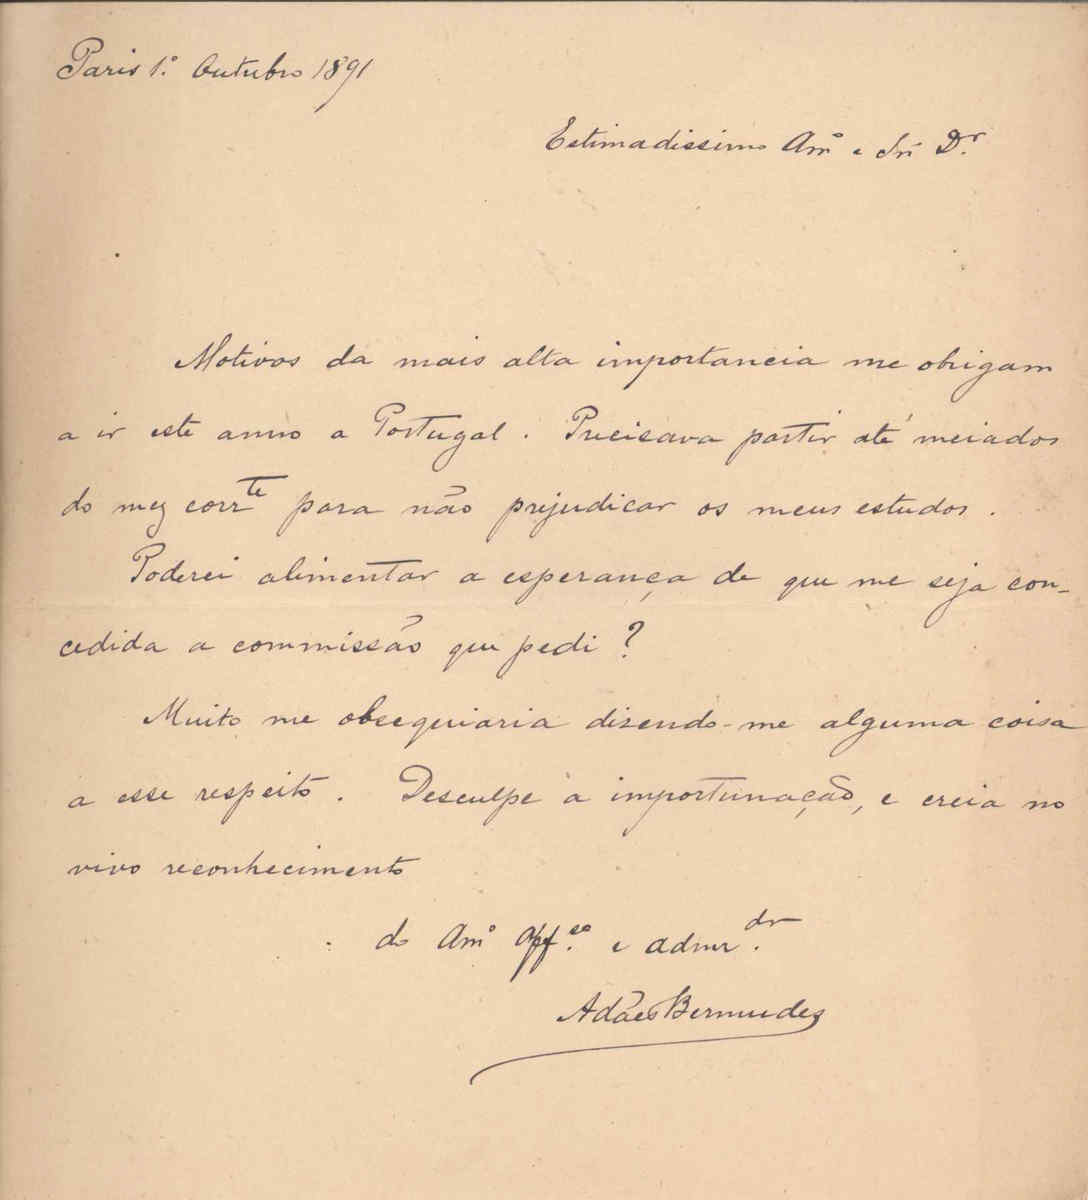 Paris 1.º Outubro 1891
Estimadissimo Am.º e Sr. D.r
Motivos da mais alta importancia me obrigam
a ir este anno a Portugal. Precisava partir até meiados
do mez corr.te para não prejudicar os meus estudos.
Poderei alimentar a esperança de que me seja con-
cedida a commissão que pedi?
Muito me obsequiaria dizendo-me alguma coisa
a esse respeito. Desculpe a importunação, e creia no
vivo reconhecimento
do Am.º aff.co e admr.dr
Adães Bermudes